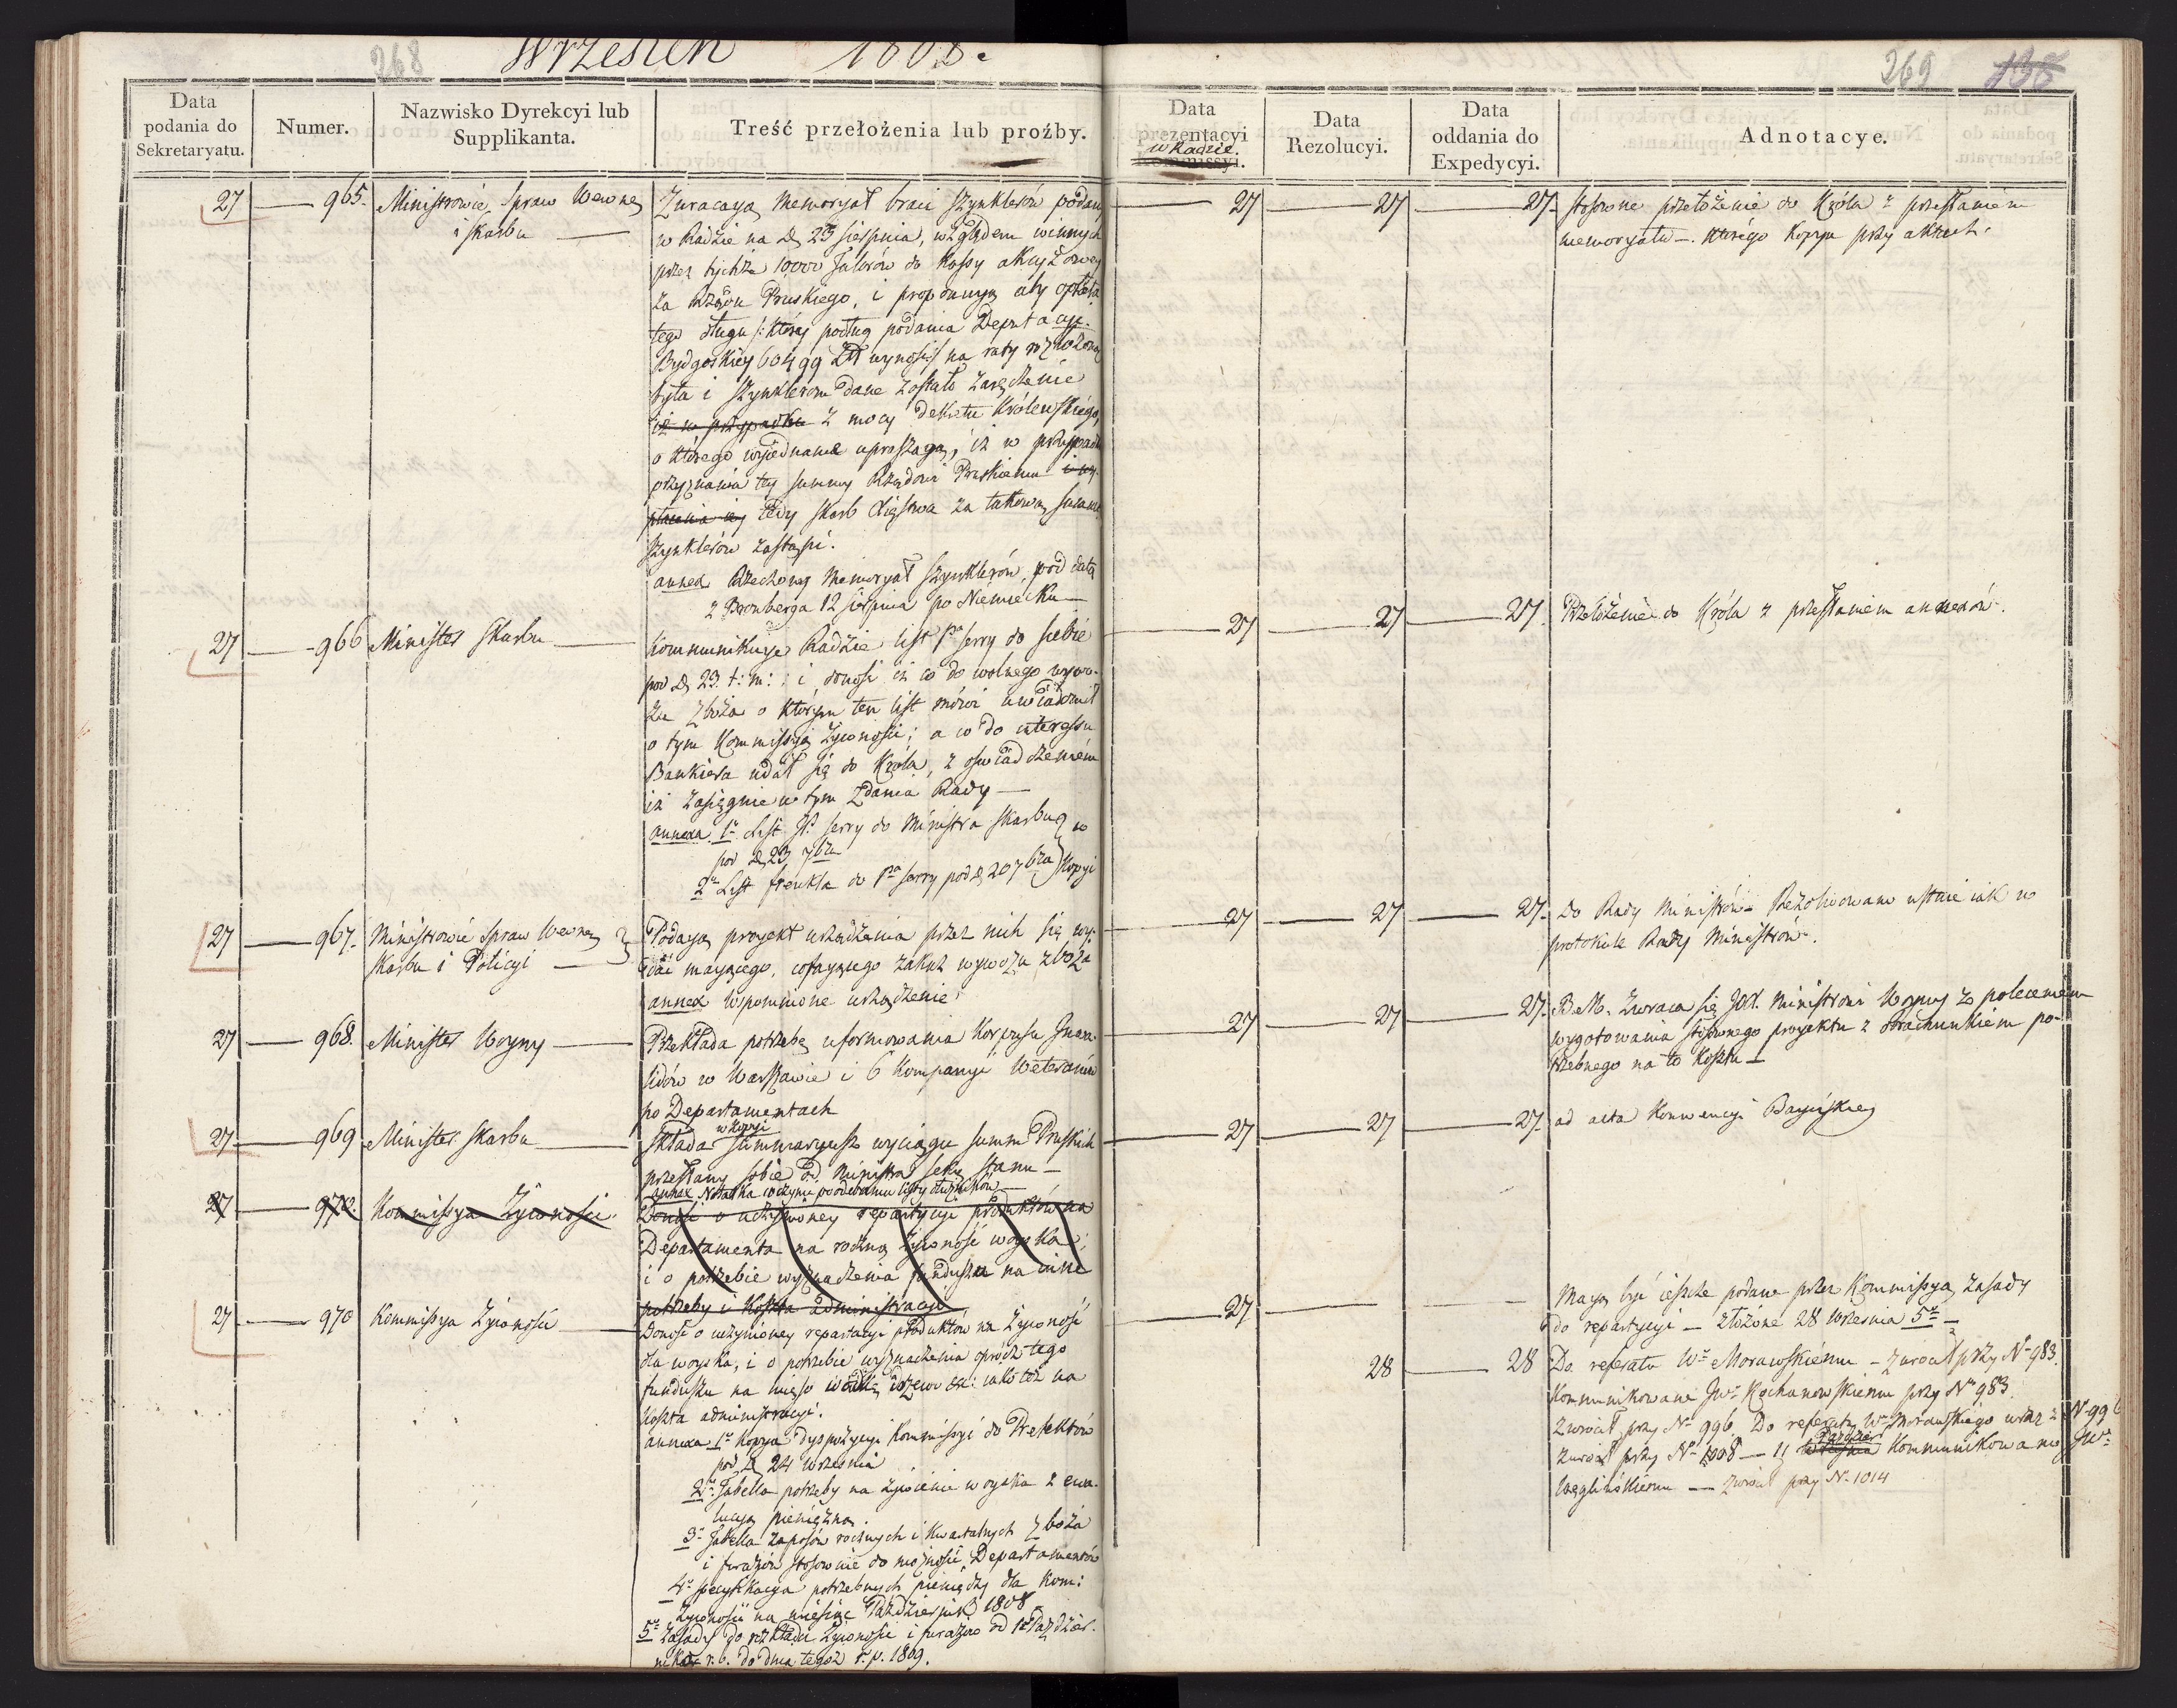 268 Wrzesień 1808.
Data podania do Sekretaryatu.
Numer.
Nazwisko Dyrekcyi lub Supplikanta.
Treść przełożenia lub proźby.
27 965. Ministrowie Spraw Wewnę
i Skarbu
Zwracaią memoryał braci Szynklerów podany
w Radzie na D 23 Sierpnia, względem winnych
przez tychże 10000 Talarów do Kassy akcyżowey
za Rządu Pruskiego, i proponuią aby opłata
tego długu /: który podług podania Deputacyi
Bydgoskiey 60499 Zł wynosi :/ na raty rozłożona
była i Szynklerom dane zostało zaręczenie
iż w przypadku z mocy Dekretu Królewskiego,
o którego wyiednanie upraszaią, iż w przypadku
przyznania tey summy Rządowi Pruskiemu i wy-
płacenia iey tedy Skarb Xięstwa za takową summę
Szynklerów zastąpi.
annex Rzeczony memoryał Szynklerów, pod datą
z Bromberga 12 Sierpnia po Niemiecku
27 966 Minister Skarbu
Kommunikuje Radzie list Pa Serry do siebie
pod D 23. t: m: i donosi iż co do wolnego wywo-
zu zboża o którym ten list mówi uwiadomił
o tym Kommissyą Żywności; a co do interessu
Bankiera udał się do Króla, z oświadczeniem
iż zasięgnie w tym zdania Rady
annexa 1o List P. Serry do Ministra Skarbu w
pod D 23 7bra
2o List Frenkla do Pa Serry pod D 20 7bra Kopyi
27 967. Ministrowie Spraw Wewnę
Skarbu i Policyi
Podaią proyekt urządzenia przez nich się wy-
dać maiącego, cofaiącego zakaz wywozu zboża
annex wspomnione urządzenie
27 968. Minister Woyny
Przekłada potrzebę uformowania Korpusu Inwa-
lidów w Warszawie i 6 Kompanyi Weteranów
po Departamentach
27 969 Minister Skarbu
w kopyi
Składa Summaryusz wyciągu summ Pruskich
przesłany sobie od Ministra Sekr. Stanu
annex Notatka
27 970. Kommissya Żywności.
Donosi o uczynioney repartycyi produktów na
Departamenta na roczną żywność woyska;
i o potrzebie wyznaczenia funduszu na inne
potrzeby i koszta administracyi
27 970 Kommissya Żywności
Donosi o uczynioney repartycyi produktów na żywność
dla woyska, i o potrzebie wyznaczenia oprócz tego
funduszu na mięso wódkę drzewo &c: iako też na
koszta administracyi.
annexa 1o Kopya dyspozycyi Kommissyi do Prefektów
pod D 24 Września
2o Tabella potrzeby na żywienie woyska z ewa-
luacyą pieniężną
3o Tabella zapasów rocznych i kwartalnych zboża
i furażów stosownie do możności Departamentów
4o Specyfikacya potrzebnych pieniędzy dla Kom:
Żywności na miesiąc Październik 1808
5o Zasady do rozkładu żywności i furażów od 1 Paździer-
nika r. b. do dnia tegoż r. p. 1809.
269 138
Data prezentacyi Kommissyi.
w Radzie.
Data Rezolucyi.
Data oddania do Expedycyi.
Adnotacye.
27 27 27. Stosowne przełożenie do Króla z przesłaniem
memoryału. którego kopya przy aktach.
27 27 27. Przełożenie do Króla z przesłaniem annexów.
27 27 27. Do Rady Ministrów. Rezolwowano ustnie iak w
protokule Rady Ministrów.
27 27 27. B. M. zwraca się JW. Ministrowi Woyny z poleceniem
wygotowania stosownego proyektu z obrachunkiem po-
trzebnego na to kosztu
27 27 27. ad acta Konwencyi Bayońskiey
27 Maią być ieszcze podane przez Kommissyą zasady
do repartycyi — złożone 28 Września 5o
28 28 Do referatu Wo Morawskiemu — zwrócił przy No 983.
Kommunikowane JWo Kochanowskiemu przy No 983
zwrócił przy No 996. Do referatu Wo Morawskiego wraz z No 996
zwrócił przy No 1008 — 11 Września Paździer Kommunikowano JWo
Węglińskiemu — zwrócił przy No 1014